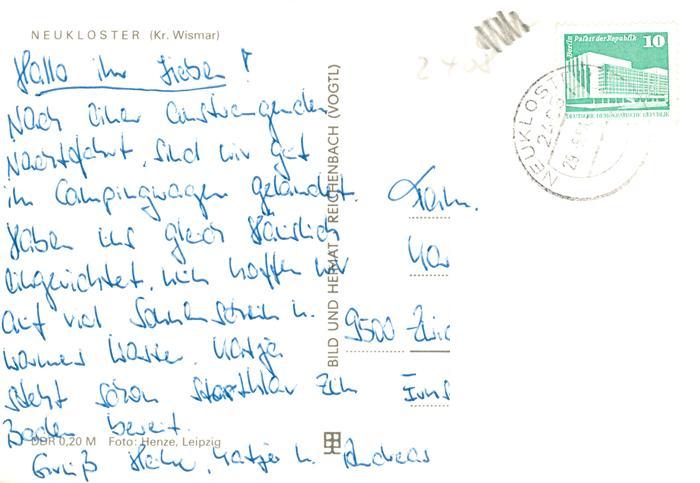 NEUKLOSTER (Kr. Wismar)
Hallo ihr Lieben!
Nach einer anstrengenden
Nachtfahrt, sind wir gut
im Campingwagen gelandet.
Haben uns gleich häuslich
eingerichtet, nun hoffen wir
auf viel Sonnenschein u.
warmes Wasser. Katja
steht schon startklar zum
Baden bereit.
Gruß Heike, Katja u. Andreas
DDR 0,20 M Foto: Henze, Leipzig
BILD UND HEIMAT REICHENBACH (VOGTL)
Fam.
9500
Berlin Palast der Republik
10
DEUTSCHE DEMOKRATISCHE REPUBLIK
NEUKLOSTER